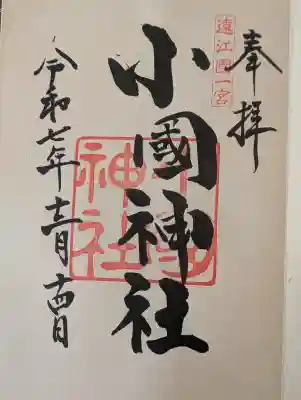 奉拝
遠江國一宮
小國神社
令和七年十二月十四日